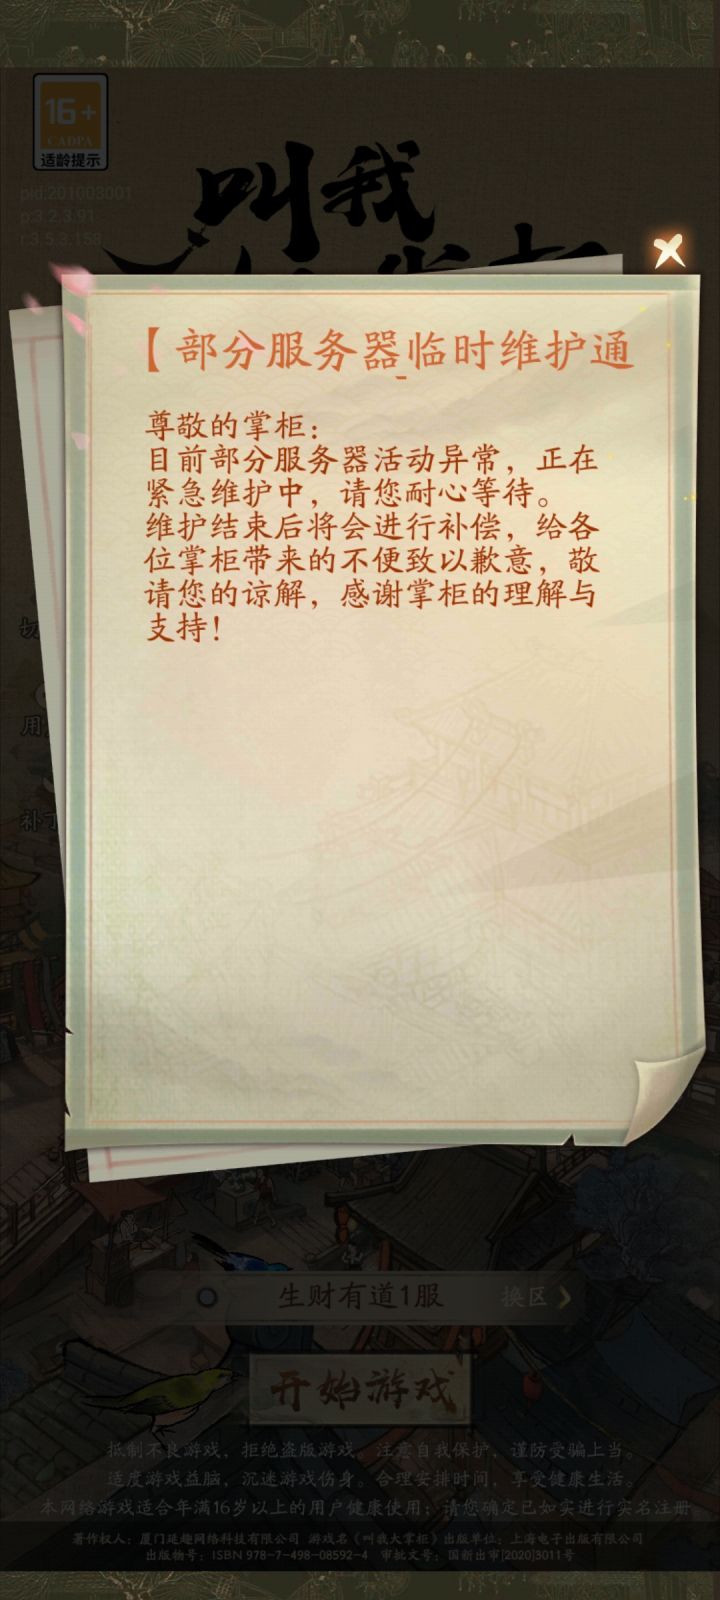 16+
CADPA
适龄提示
pid:201003001
p:3.2.3.91
r:3.5.3.158
叫我
【部分服务器临时维护通
尊敬的掌柜：
目前部分服务器活动异常，正在
紧急维护中，请您耐心等待。
维护结束后将会进行补偿，给各
位掌柜带来的不便致以歉意，敬
请您的谅解，感谢掌柜的理解与
支持！
切
用
补丁
生财有道1服
换区
开始游戏
抵制不良游戏，拒绝盗版游戏。注意自我保护，谨防受骗上当。
适度游戏益脑，沉迷游戏伤身。合理安排时间，享受健康生活。
本网络游戏适合年满16岁以上的用户健康使用；请您确定已如实进行实名注册。
著作权人：厦门延趣网络科技有限公司 游戏名《叫我大掌柜》出版单位：上海电子出版有限公司
出版物号：ISBN 978-7-498-08592-4 审批文号：国新出审[2020]3011号